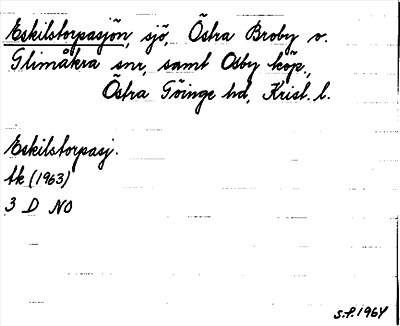 Eskilstorpasjön, sjö, Östra Broby o.
Glimåkra snr, samt Osby köp.,
Östra Göinge hd, Krist. l.
Eskilstorpasj.
tk (1963)
3 D NO
S.P. 1964